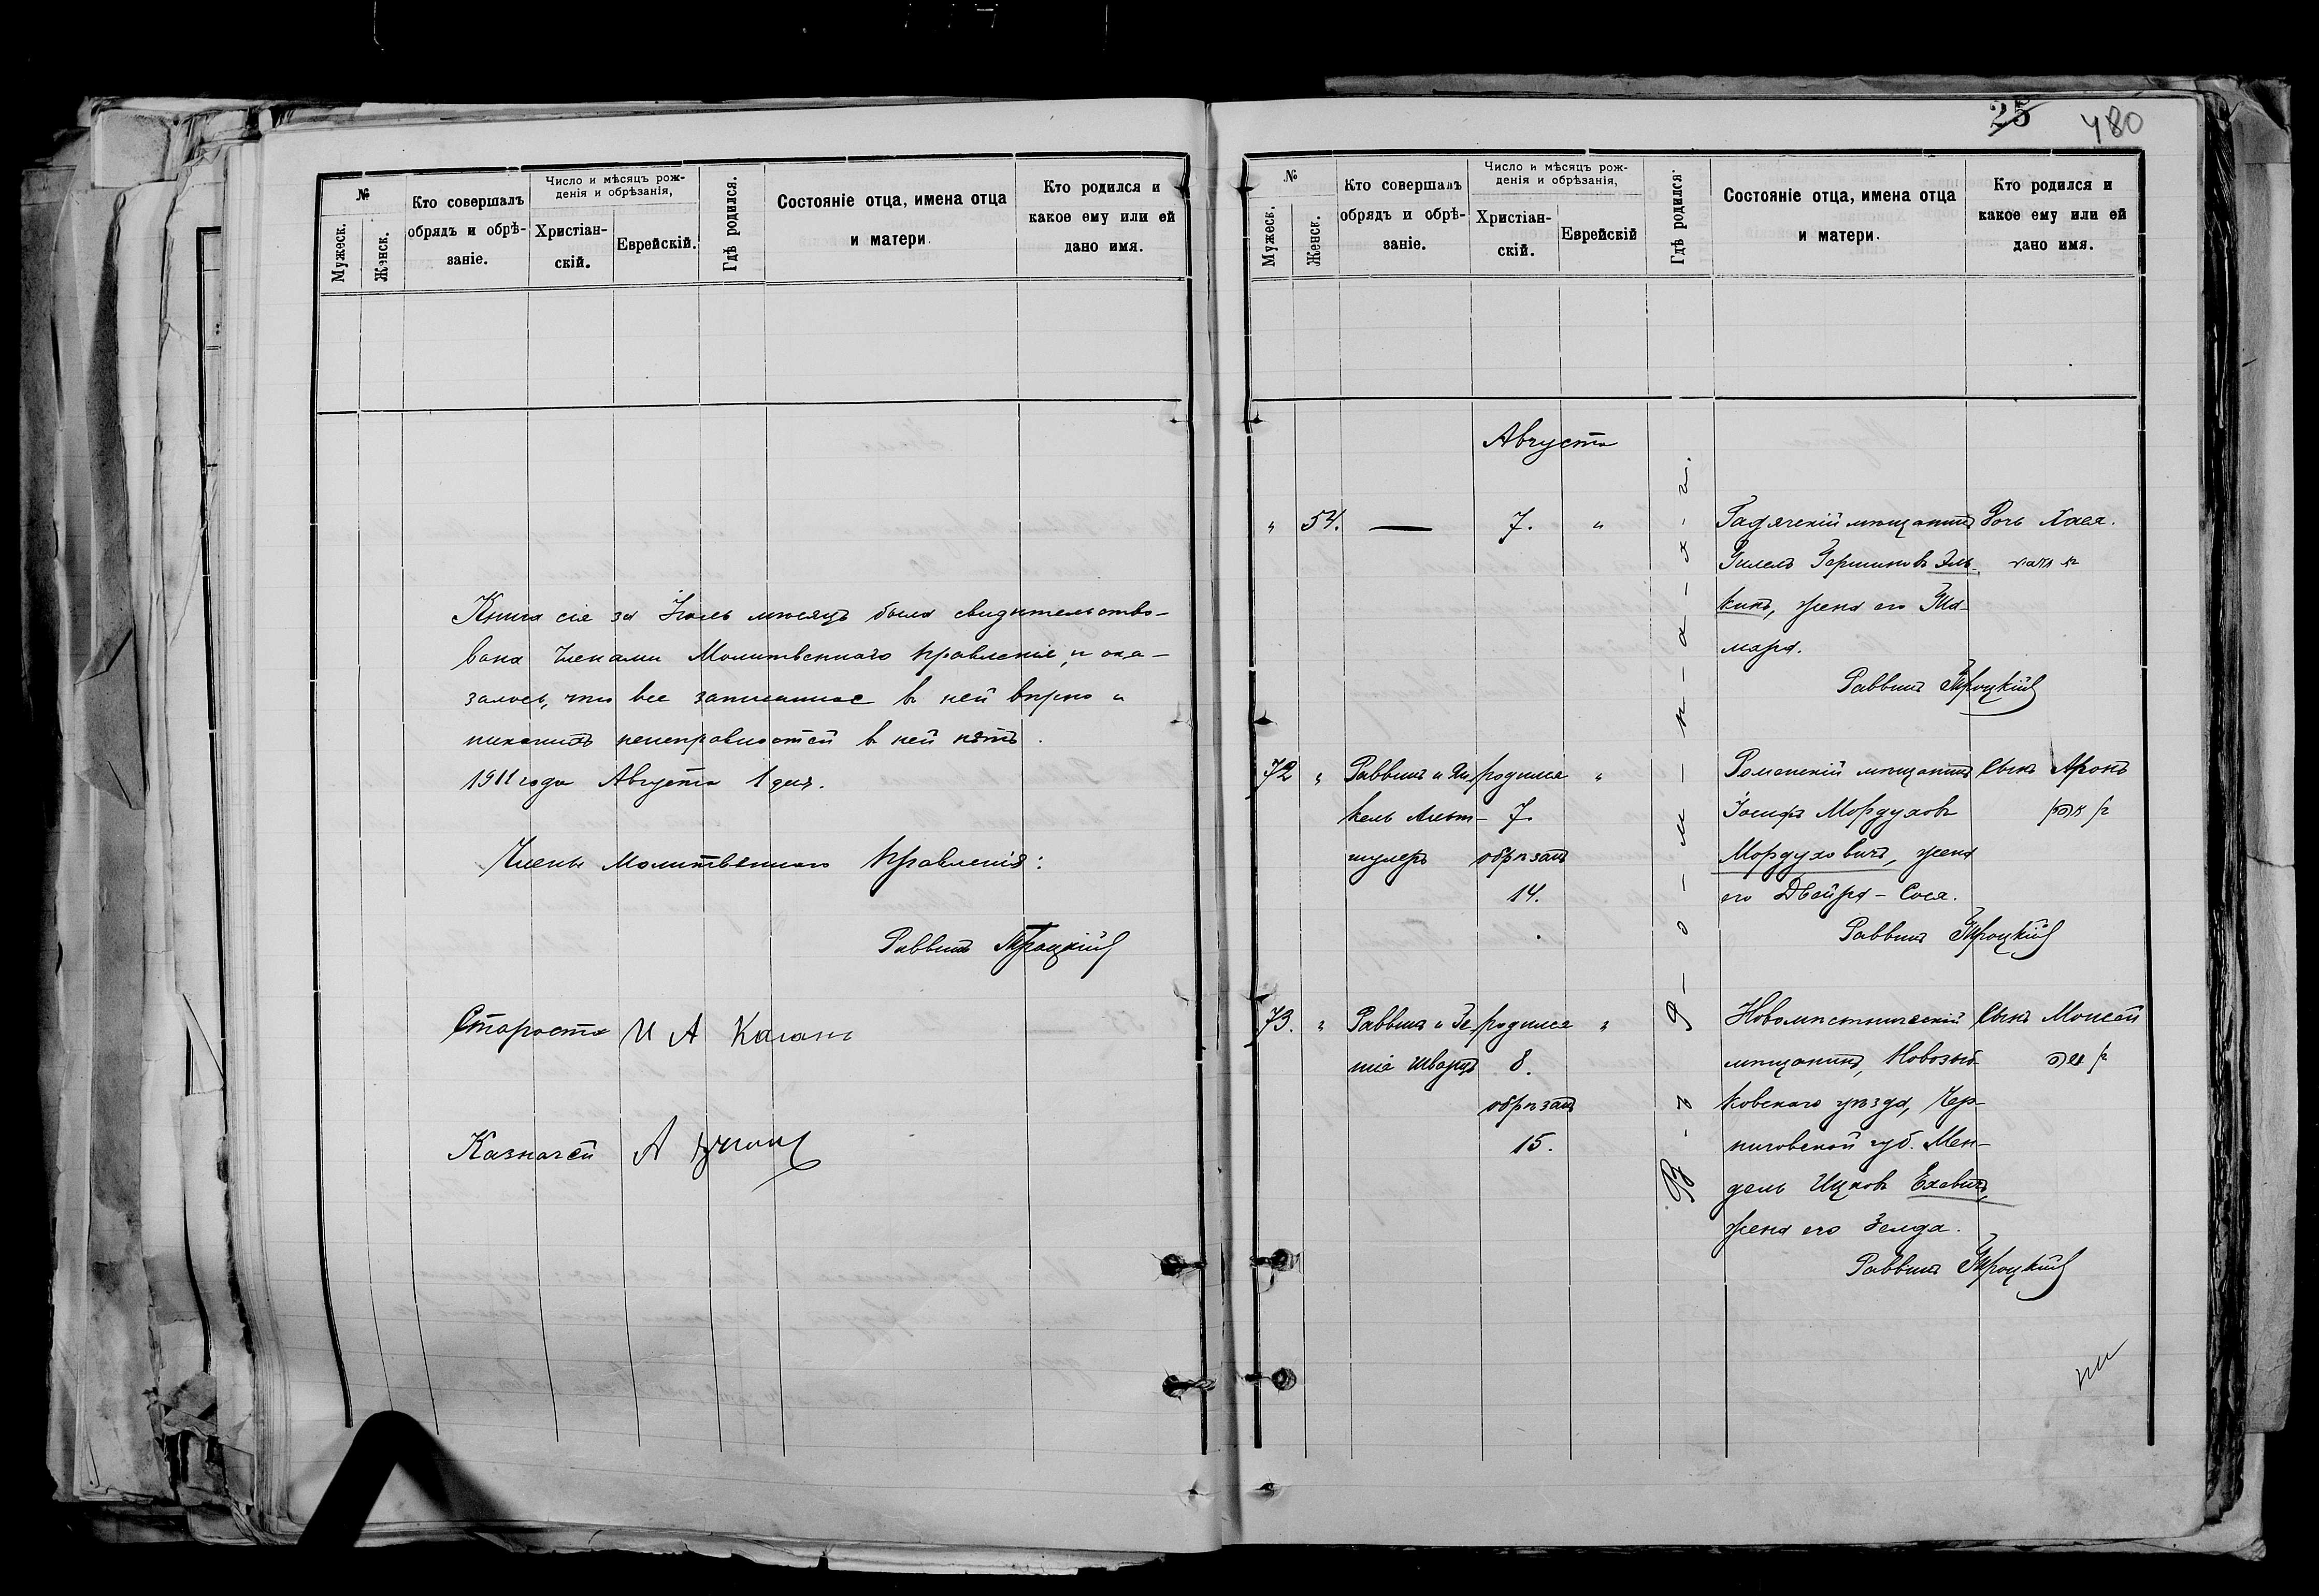 №
Мужеск.
Женск.
Кто совершалъ
обрядъ и обрѣ-
заніе.
Число и мѣсяцъ рож-
денія и обрѣзанія,
Христіан-
скій.
Еврейскій.
Гдѣ родился.
Состояніе отца, имена отца
и матери.
Кто родился и
какое ему или ей
дано имя.
Книга сія за Іюль мѣсяцъ была свидѣтельство-
вана Членами Молитвеннаго Правленія, и ока-
залось, что все записанное въ ней вѣрно и
никакихъ неисправностей въ ней нѣтъ.
1911 года Августа 1 дня.
Члены Молитвеннаго Правленія:
Раввинъ Троцкій
Староста И А Каганъ
Казначей А
25 480
№
Мужеск.
Женск.
Кто совершалъ
обрядъ и обрѣ-
заніе.
Число и мѣсяцъ рож-
денія и обрѣзанія,
Христіан-
скій.
Еврейскій
Гдѣ родился
Состояніе отца, имена отца
и матери.
Кто родился и
какое ему или ей
дано имя.
Августа
" 54. — 7. " Гадячскій мѣщанинъ Дочь Хася.
Гилель Гершиновъ Эль-
кинъ, жена его Та-
мара.
Раввинъ Троцкій
72 " Раввинъ и Ян- родился " Роменскій мѣщанинъ Сынъ Аронъ
кель Альт- 7. Іосифъ Мордуховъ
шулеръ обрѣзанъ Мордуховичъ, жена
14. его Двейра-Сося.
Раввинъ Троцкій
73. " Раввинъ и Зе- родился " Новомѣстническій Сынъ Моисей
Шварцъ 8. мѣщанинъ, Новозыб-
обрѣзанъ ковскаго уѣзда, Чер-
15. ниговской губ. Мен-
дель Ицковъ Ехевичъ,
жена его Зелда.
Раввинъ Троцкій